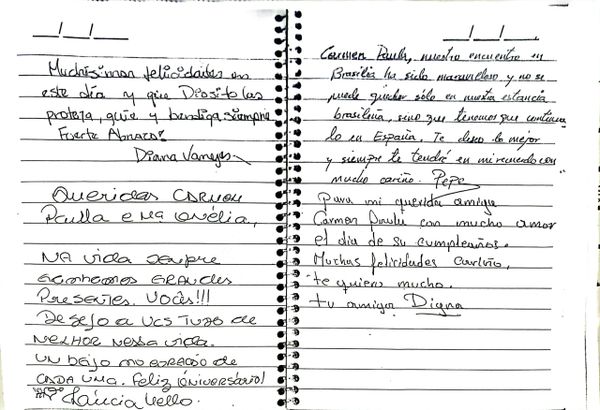 __/__/__
Muchísimas felicidades en
este día y que Diosito las
proteja, guie y bendiga siempre
Fuerte Abrazo!
Diana
Queridas CARMEN
PAULLA e NA
NA vida sempre
GANHAMOS GRANDES
PRESENTES. VOCÊS!!!
DESEJO A VCS TUDO de
MELHOR NESSA vida.
UM BEIJO NO CORAÇÃO de
CADA UMA. Feliz ANIVERSÁRIO!
Láucia Vello.
__/__/__
Carmen Paula, nuestro encuentro en
Brasilia ha sido maravilloso y no se
puede quedar sólo en nuestra estancia
brasileña, sino que tenemos que continua
lo en España. Te deseo lo mejor
y siempre te tendré en mi recuerdo con
mucho cariño. Pepe
Para mi querida amiga
Carmen Paula con mucho amor
el día de su cumpleaños.
Muchas felicidades cariño,
te quiero mucho.
tu amiga Digna